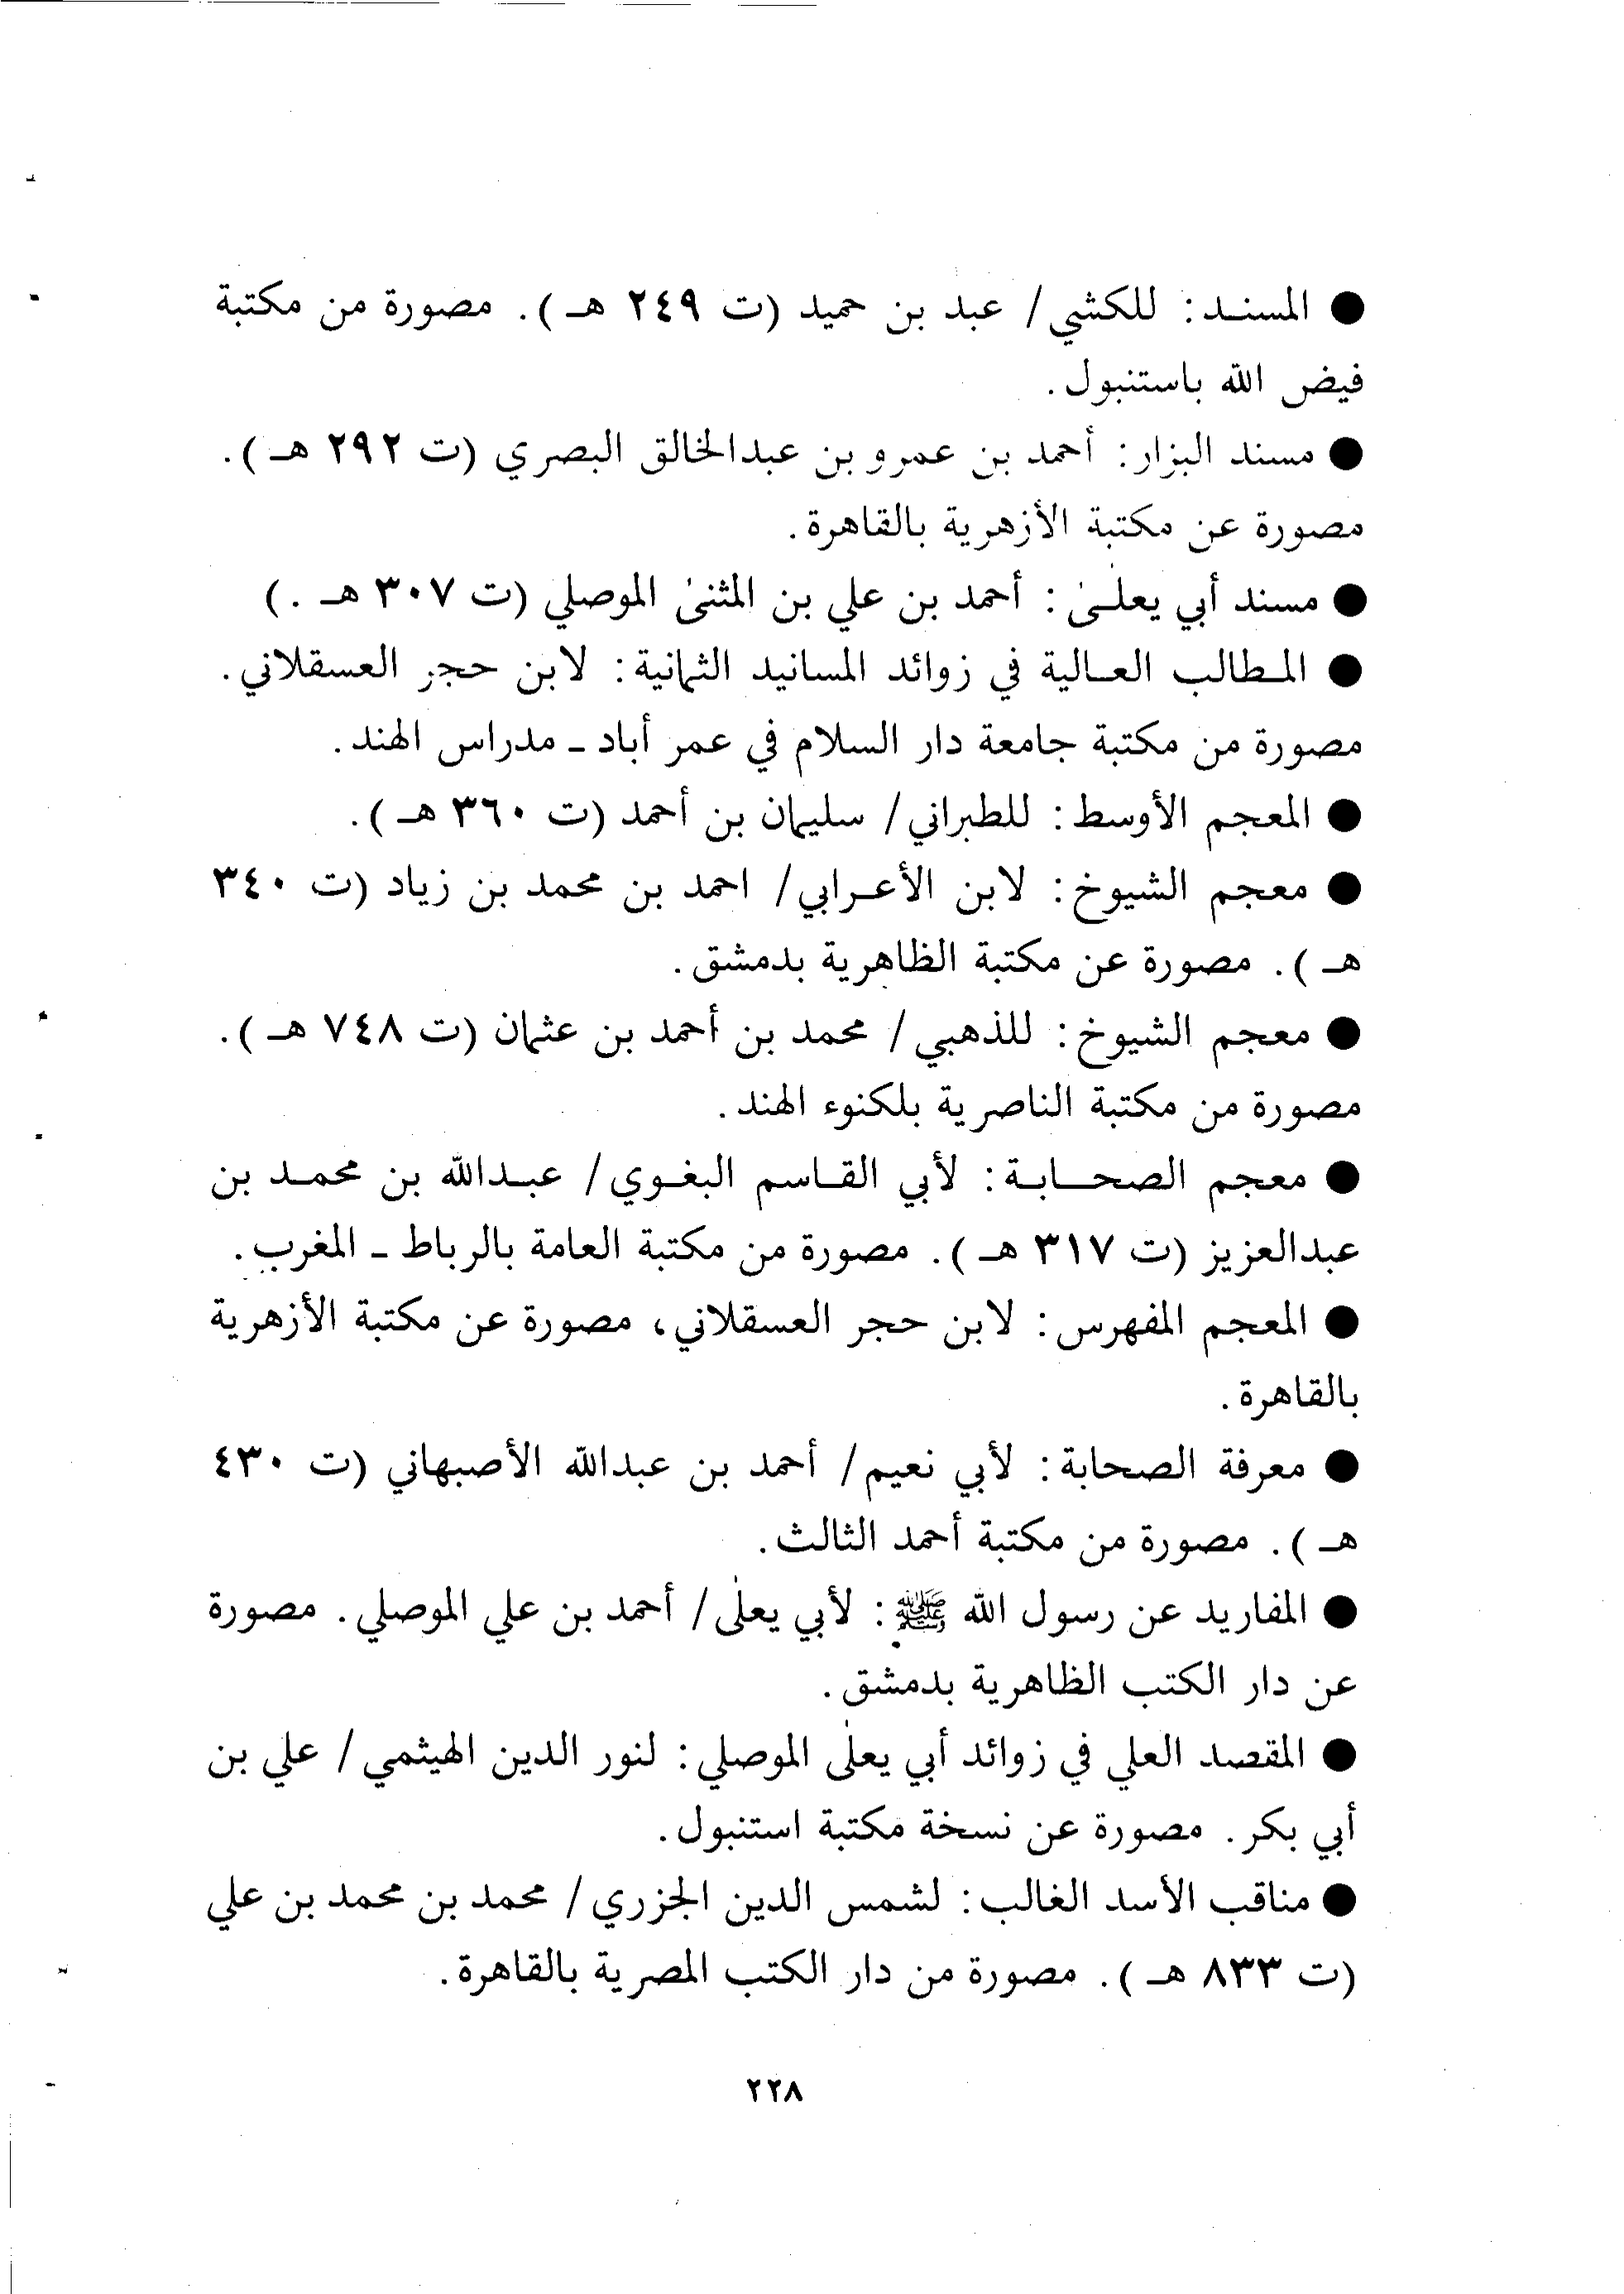 ● المسند: للكشي/ عبد بن حميد (ت ٢٤٩ هـ). مصورة من مكتبة
فيض الله باستنبول.
● مسند البزار: أحمد بن عمرو بن عبدالخالق البصري (ت ٢٩٢ هـ).
مصورة عن مكتبة الأزهرية بالقاهرة.
● مسند أبي يعلىٰ: أحمد بن علي بن المثنىٰ الموصلي (ت ٣٠٧ هـ.)
● المطالب العالية في زوائد المسانيد الثمانية: لابن حجر العسقلاني.
مصورة من مكتبة جامعة دار السلام في عمر أباد ـ مدراس الهند.
● المعجم الأوسط: للطبراني/ سليمان بن أحمد (ت ٣٦٠ هـ).
● معجم الشيوخ: لابن الأعرابي/ احمد بن محمد بن زياد (ت ٣٤٠
هـ). مصورة عن مكتبة الظاهرية بدمشق.
● معجم الشيوخ: للذهبي/ محمد بن أحمد بن عثمان (ت ٧٤٨ هـ).
مصورة من مكتبة الناصرية بلكنوء الهند.
● معجم الصحابة: لأبي القاسم البغوي/ عبدالله بن محمد بن
عبدالعزيز (ت ٣١٧ هـ). مصورة من مكتبة العامة بالرباط ـ المغرب.
● المعجم المفهرس: لابن حجر العسقلاني، مصورة عن مكتبة الأزهرية
بالقاهرة.
● معرفة الصحابة: لأبي نعيم/ أحمد بن عبدالله الأصبهاني (ت ٤٣٠
هـ). مصورة من مكتبة أحمد الثالث.
● المفاريد عن رسول الله ﷺ: لأبي يعلىٰ/ أحمد بن علي الموصلي. مصورة
عن دار الكتب الظاهرية بدمشق.
● المقصد العلي في زوائد أبي يعلىٰ الموصلي: لنور الدين الهيثمي/ علي بن
أبي بكر. مصورة عن نسخة مكتبة استنبول.
● مناقب الأسد الغالب: لشمس الدين الجزري/ محمد بن محمد بن علي
(ت ٨٣٣ هـ). مصورة من دار الكتب المصرية بالقاهرة.
٢٢٨